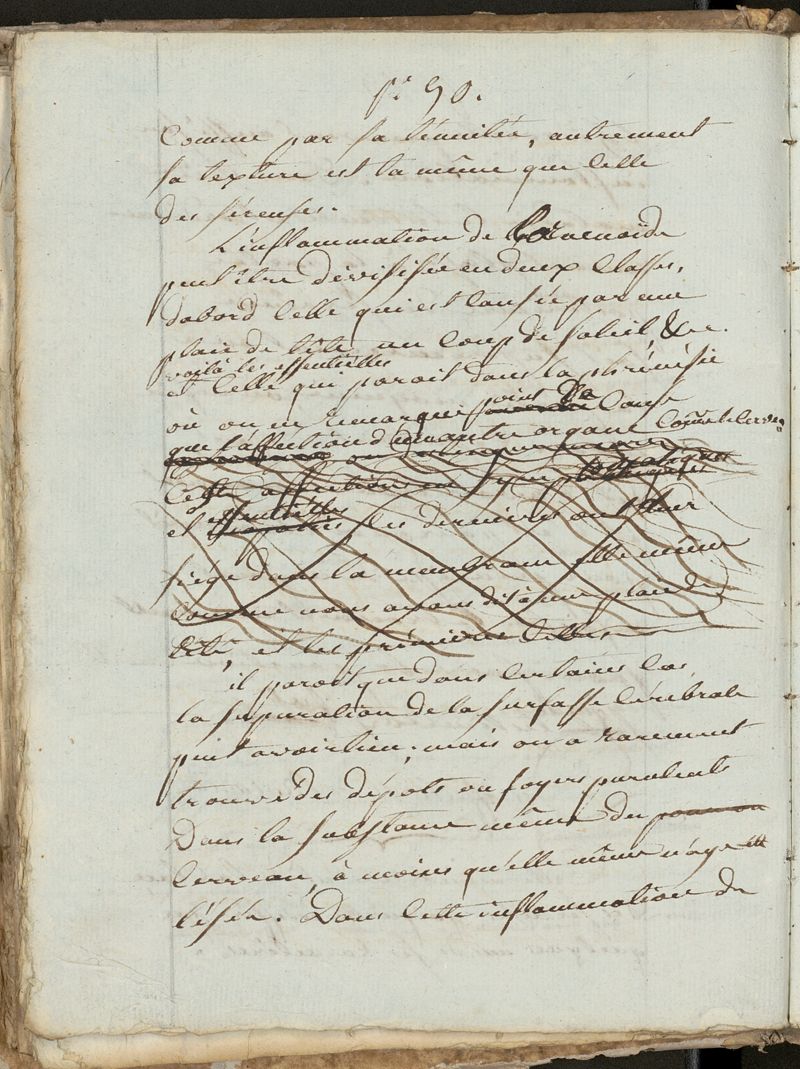 pe 50.
Comme par sa ténuitée, autrement
sa texture est la même que celle
des séreuses.
L'inflammation de l'aracnoïde
peut être divisisée en deux classes,
dabord celle qui est causée par une
plaie de tête, un coup de soleil, &c.
voila les essentielles
et celle qui paroit dans la phrénésie
où on ne remarque point de cause
que l'affection d'un autre organe comme le cerveau
cette affection en
et essentielles les dernieres ont leur
siege dans la membrane elle même
comme nous avons dit à une plaie de
tête, et les premieres celles
il paroit que dans certains cas
la suppuration de la surfasse cérébrale
peut avoir lieu; mais on a rarement
trouvé des dépots ou foyers purulents
Dans la substance même du poumon
cerveau, à moins qu'elle même n'aye été
lésée. Dans cette inflammation de